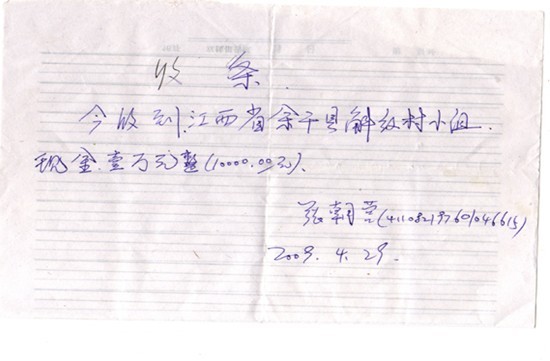 收 条
今收到江西省余干县解放村小组
现金壹万元整(10000.00元).
张朝营(411082197601046615)
2009.4.29.